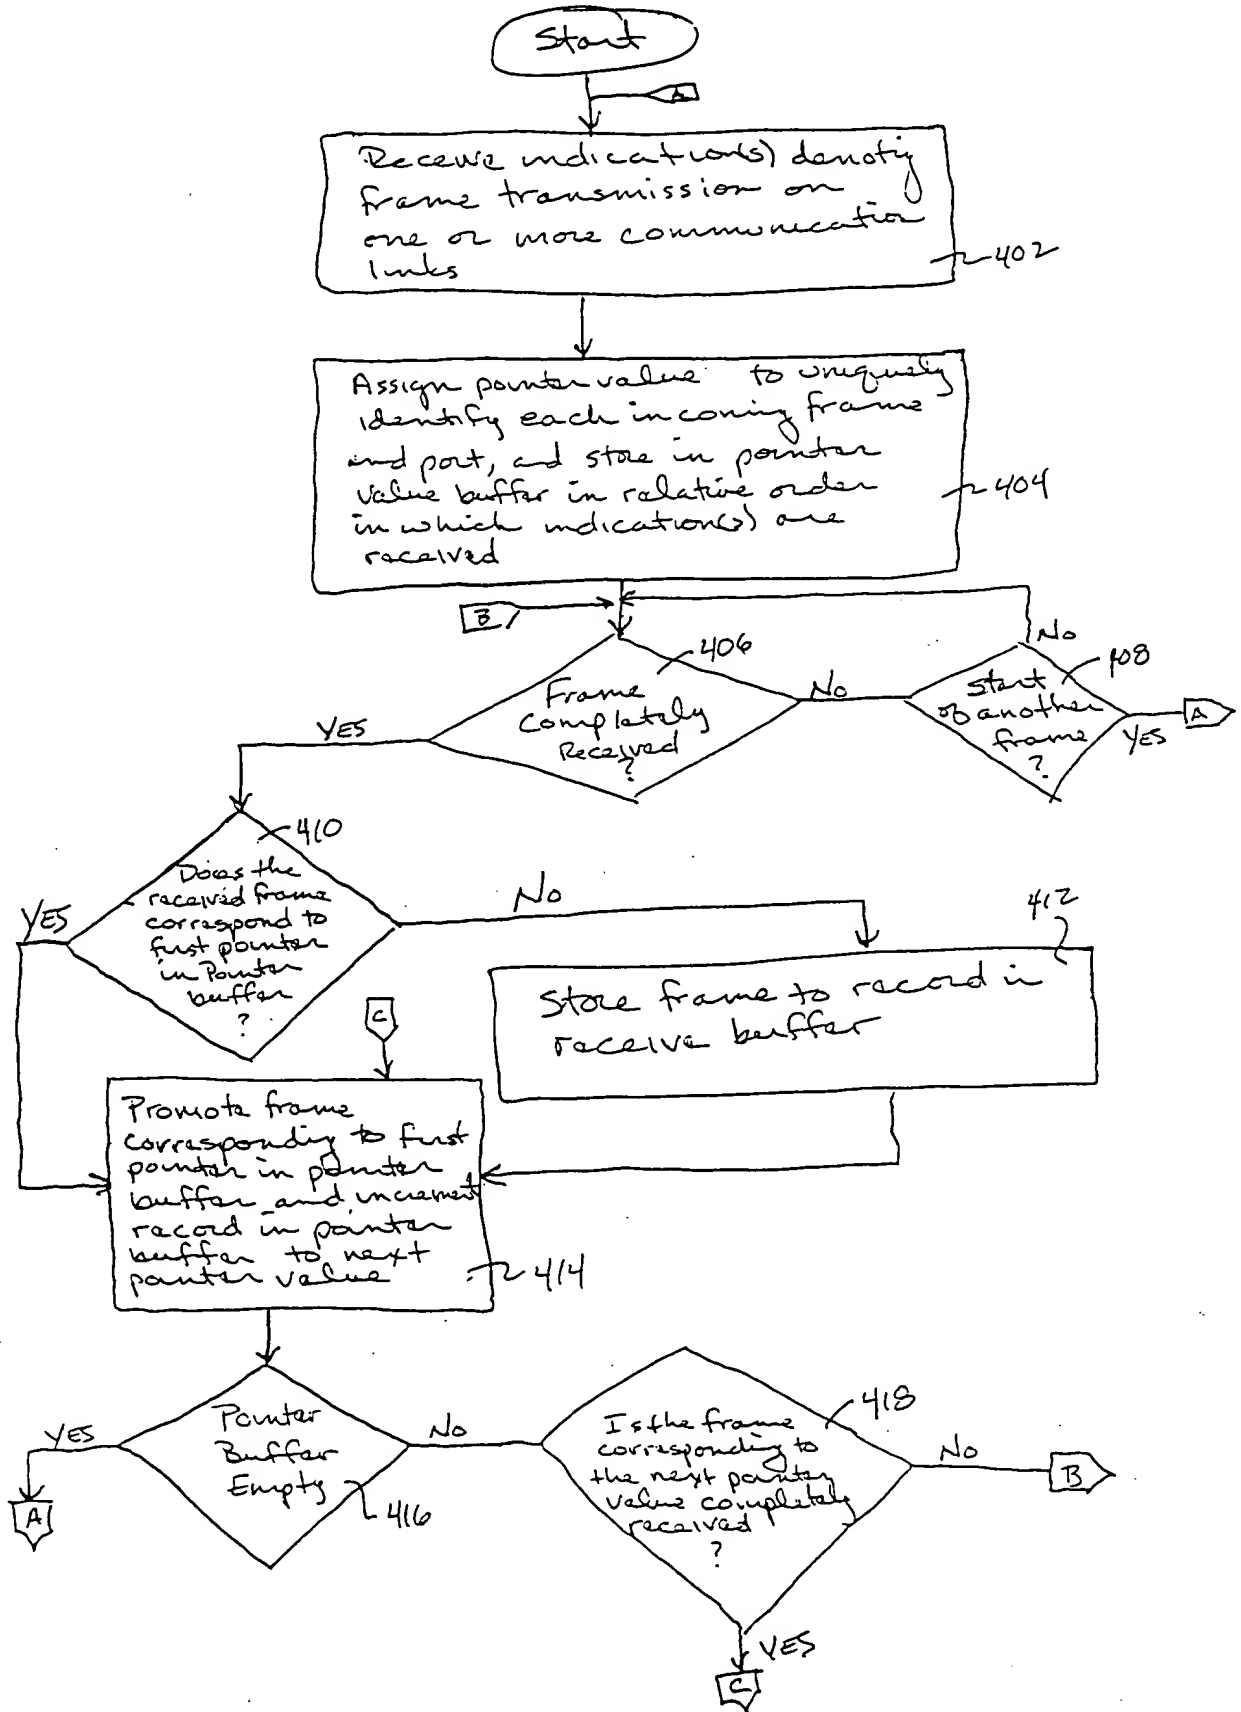 Start
A
Receive indication(s) denoting
frame transmission on
one or more communication
links
402
Assign pointer value to uniquely
identify each incoming frame
and port, and store in pointer
value buffer in relative order
in which indication(s) are
received
404
B
406
Frame
Completely
Received
?
No
YES
No
408
Start
of another
frame
?
YES
A
410
Does the
received frame
correspond to
first pointer
in Pointer
buffer
?
YES
No
412
Store frame to record in
receive buffer
C
Promote frame
corresponding to first
pointer in pointer
buffer and increment
record in pointer
buffer to next
pointer value
414
Pointer
Buffer
Empty
416
YES
A
No
418
Is the frame
corresponding to
the next pointer
value completely
received
?
No
B
YES
C